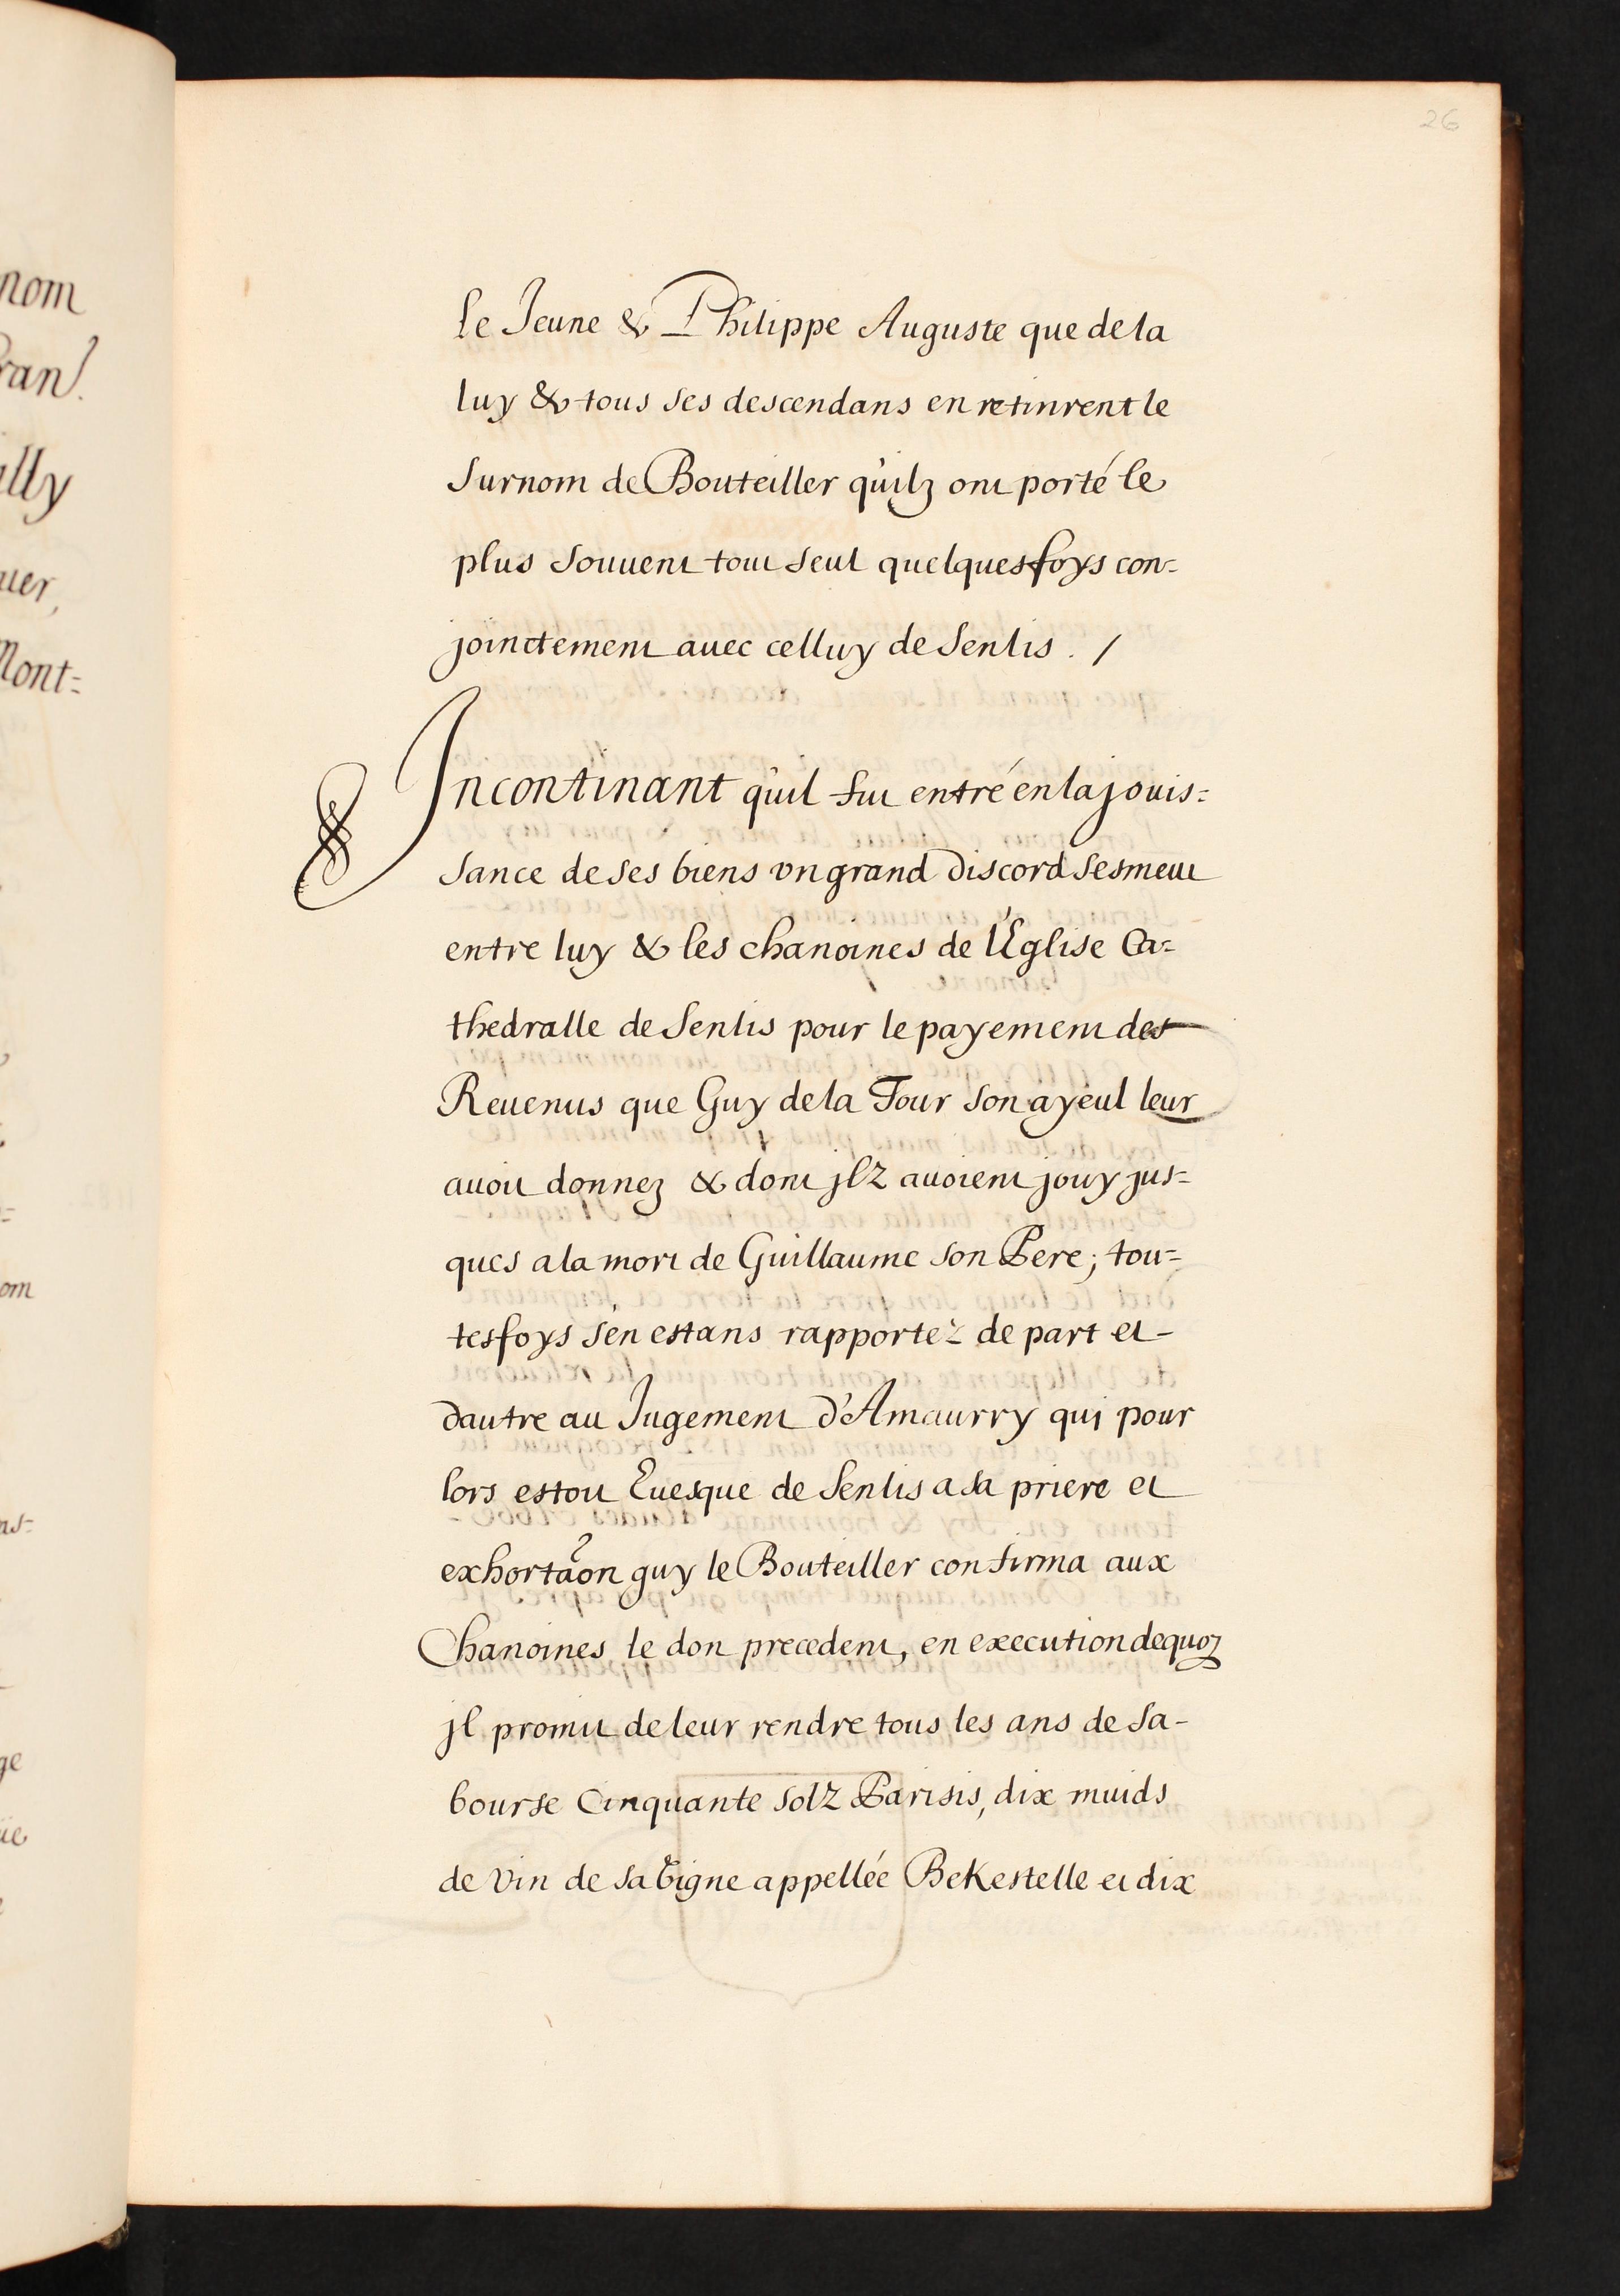 26
le Jeune & Philippe Auguste que de la
luy & tous ses descendans en retinrent le
Surnom de Bouteiller qu'ilz ont porté le
plus souuent tout seul quelquesfoys con-
joinctement auec celluy de Senlis . /
Incontinant qu'il fut entré en la jouis=
sance de ses biens vn grand discord sesmeut
entre luy & les chanoines de l'Église Ca=
thedralle de Senlis pour le payement des
Reuenus que Guy de la Tour son ayeul leur
auoit donnez & dont jlz auoient jouy jus=
ques a la mort de Guillaume son Pere ; tou=
tesfoys s'en estans rapportez de part et -
dautre au Jugement d'Amaurry qui pour
lors estoit Euesque de Senlis a sa priere et
exhortaon guy le Bouteiller confirma aux
Chanoines le don precedent, en execution dequoy
jl promit de leur rendre tous les ans de sa -
bourse Cinquante solz Parisis, dix muids
de vin de sa Vigne appellée BeKestelle et dix
nom
illy
uer,
Mont=
om
ns=
ge